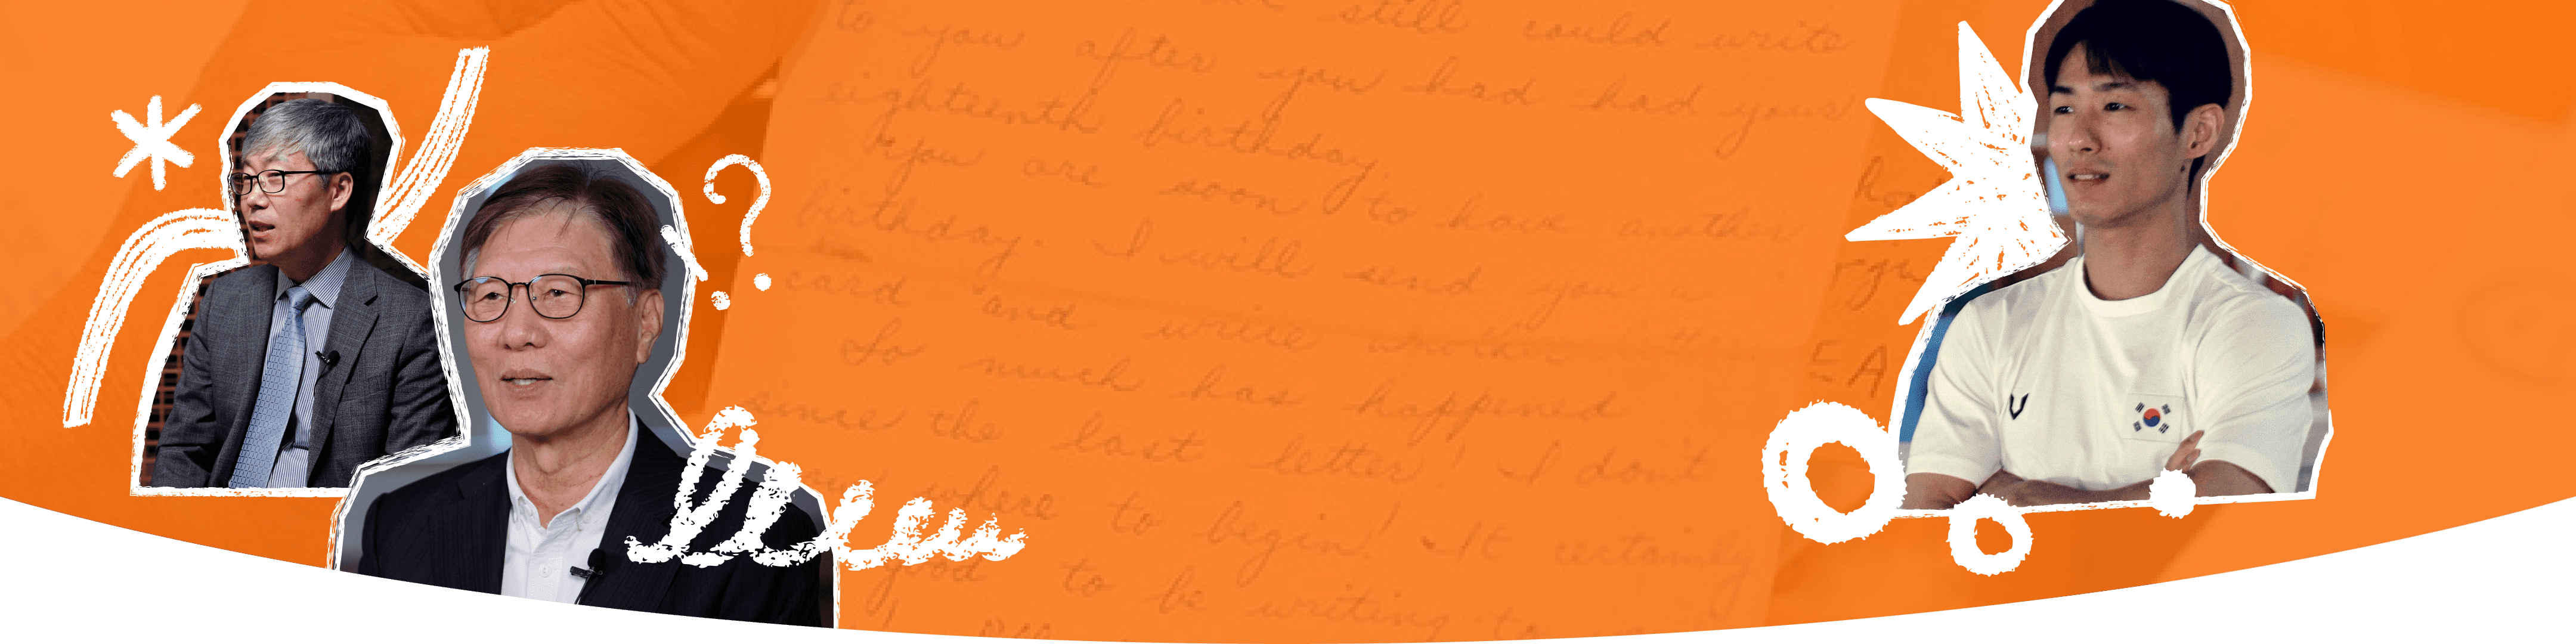 still could write
to you after you had had your
eighteenth birthday.
You are soon to have another
birthday. I will send you a
card and write another
So much has happened
since the last letter! I don't
where to begin! It certainly
good to be writing to
EA